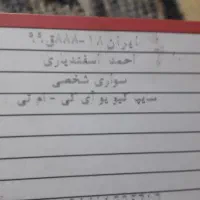 ایران ۱۸-۸۸۸ق۹۹
احمد اسفندیاری
سواری شخصی
سایپ کیو یو آی کی - ام تی